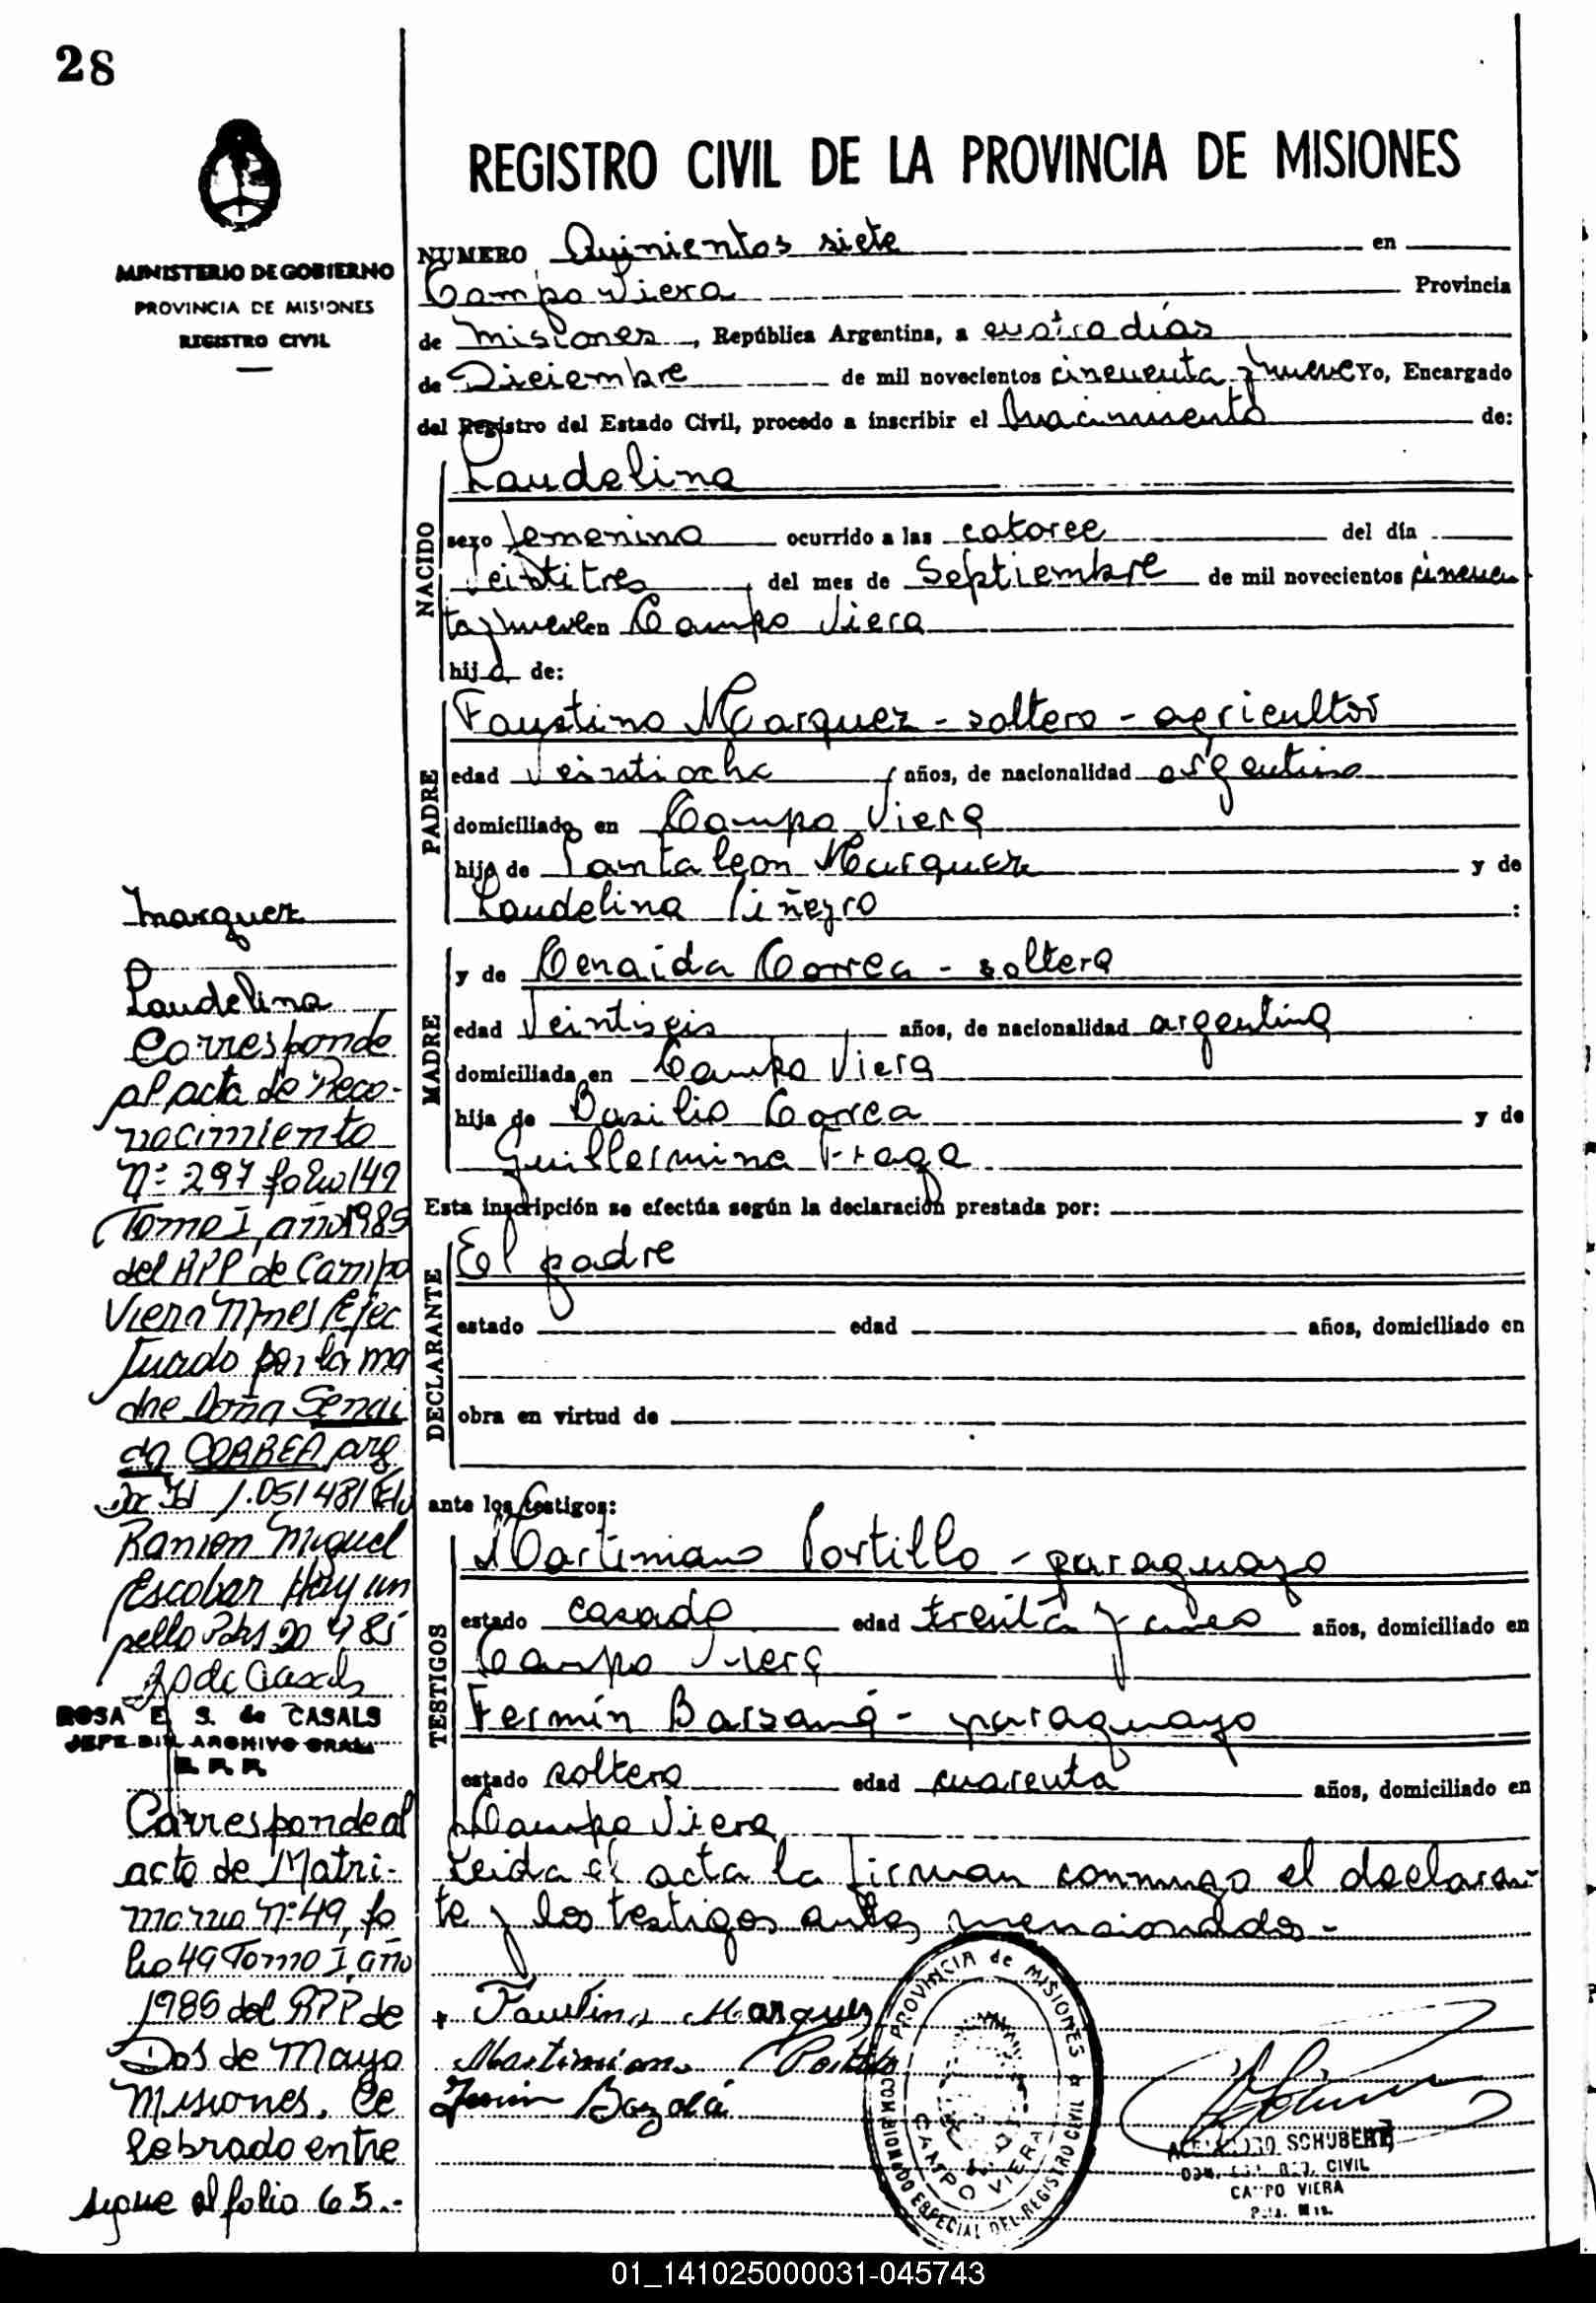 28
REGISTRO CIVIL DE LA PROVINCIA DE MISIONES
MINISTERIO DE GOBIERNO
PROVINCIA DE MISIONES
REGISTRO CIVIL
NUMERO Quinientos siete en
Campo Viera Provincia
de Misiones, República Argentina, a cuatro días
de Diciembre de mil novecientos cincuenta y nueve Yo, Encargado
del Registro del Estado Civil, procedo a inscribir el nacimiento de:
NACIDO
Laudelina
sexo femenino ocurrido a las catorce del día
Veintitres del mes de Septiembre de mil novecientos cincuen
ta y nueve en Campo Viera
hija de:
PADRE
Faustino Marquez - soltero - agricultor
edad Veintiocho años, de nacionalidad argentino
domiciliado en Campo Viera
hijo de Pantaleon Marquez y de
Laudelina Piñeyro :
MADRE
y de Cenaida Correa - soltera
edad Veintiseis años, de nacionalidad argentina
domiciliada en Campo Viera
hija de Basilio Correa y de
Guillermina Fraga
Esta inscripción se efectúa según la declaración prestada por:
DECLARANTE
El padre
estado edad años, domiciliado en
obra en virtud de
ante los testigos:
TESTIGOS
Martimiano Portillo - paraguayo
estado casado edad treinta y años, domiciliado en
Campo Viera
Fermín Barzaná - paraguayo
estado soltero edad cuarenta años, domiciliado en
Campo Viera
Leida el acta la firman conmigo el declaran-
te y los testigos antes mencionados -
Faustino Marquez
Martimiano Portillo
PROVINCIA de MISIONES
COMISIONADO ESPECIAL DEL REGISTRO CIVIL
CAMPO VIERA
SCHUBERT
CIVIL
CAMPO VIERA
Marquez
Laudelina
Corresponde
al acta de Reco-
nocimiento
Nº 297 folio 149
Tomo I, año 1985
del RPP de Campo
Viera Mnes Efec
tuado por la ma
dre Doña Senai
da CORREA arg
Doc Id 1.051481
Ramon Miguel
Escobar Hay un
sello Pdas 20 4 85
ROSA E. S. de CASALS
JEFE DIV. ARCHIVO GRAL.
R. P. P.
Corresponde al
acta de Matri-
monio Nº 49, fo
lio 49 Tomo I, año
1985 del RPP de
Dos de Mayo
Misiones. Ce
lebrado entre
sigue al folio 65.-
01_141025000031-045743